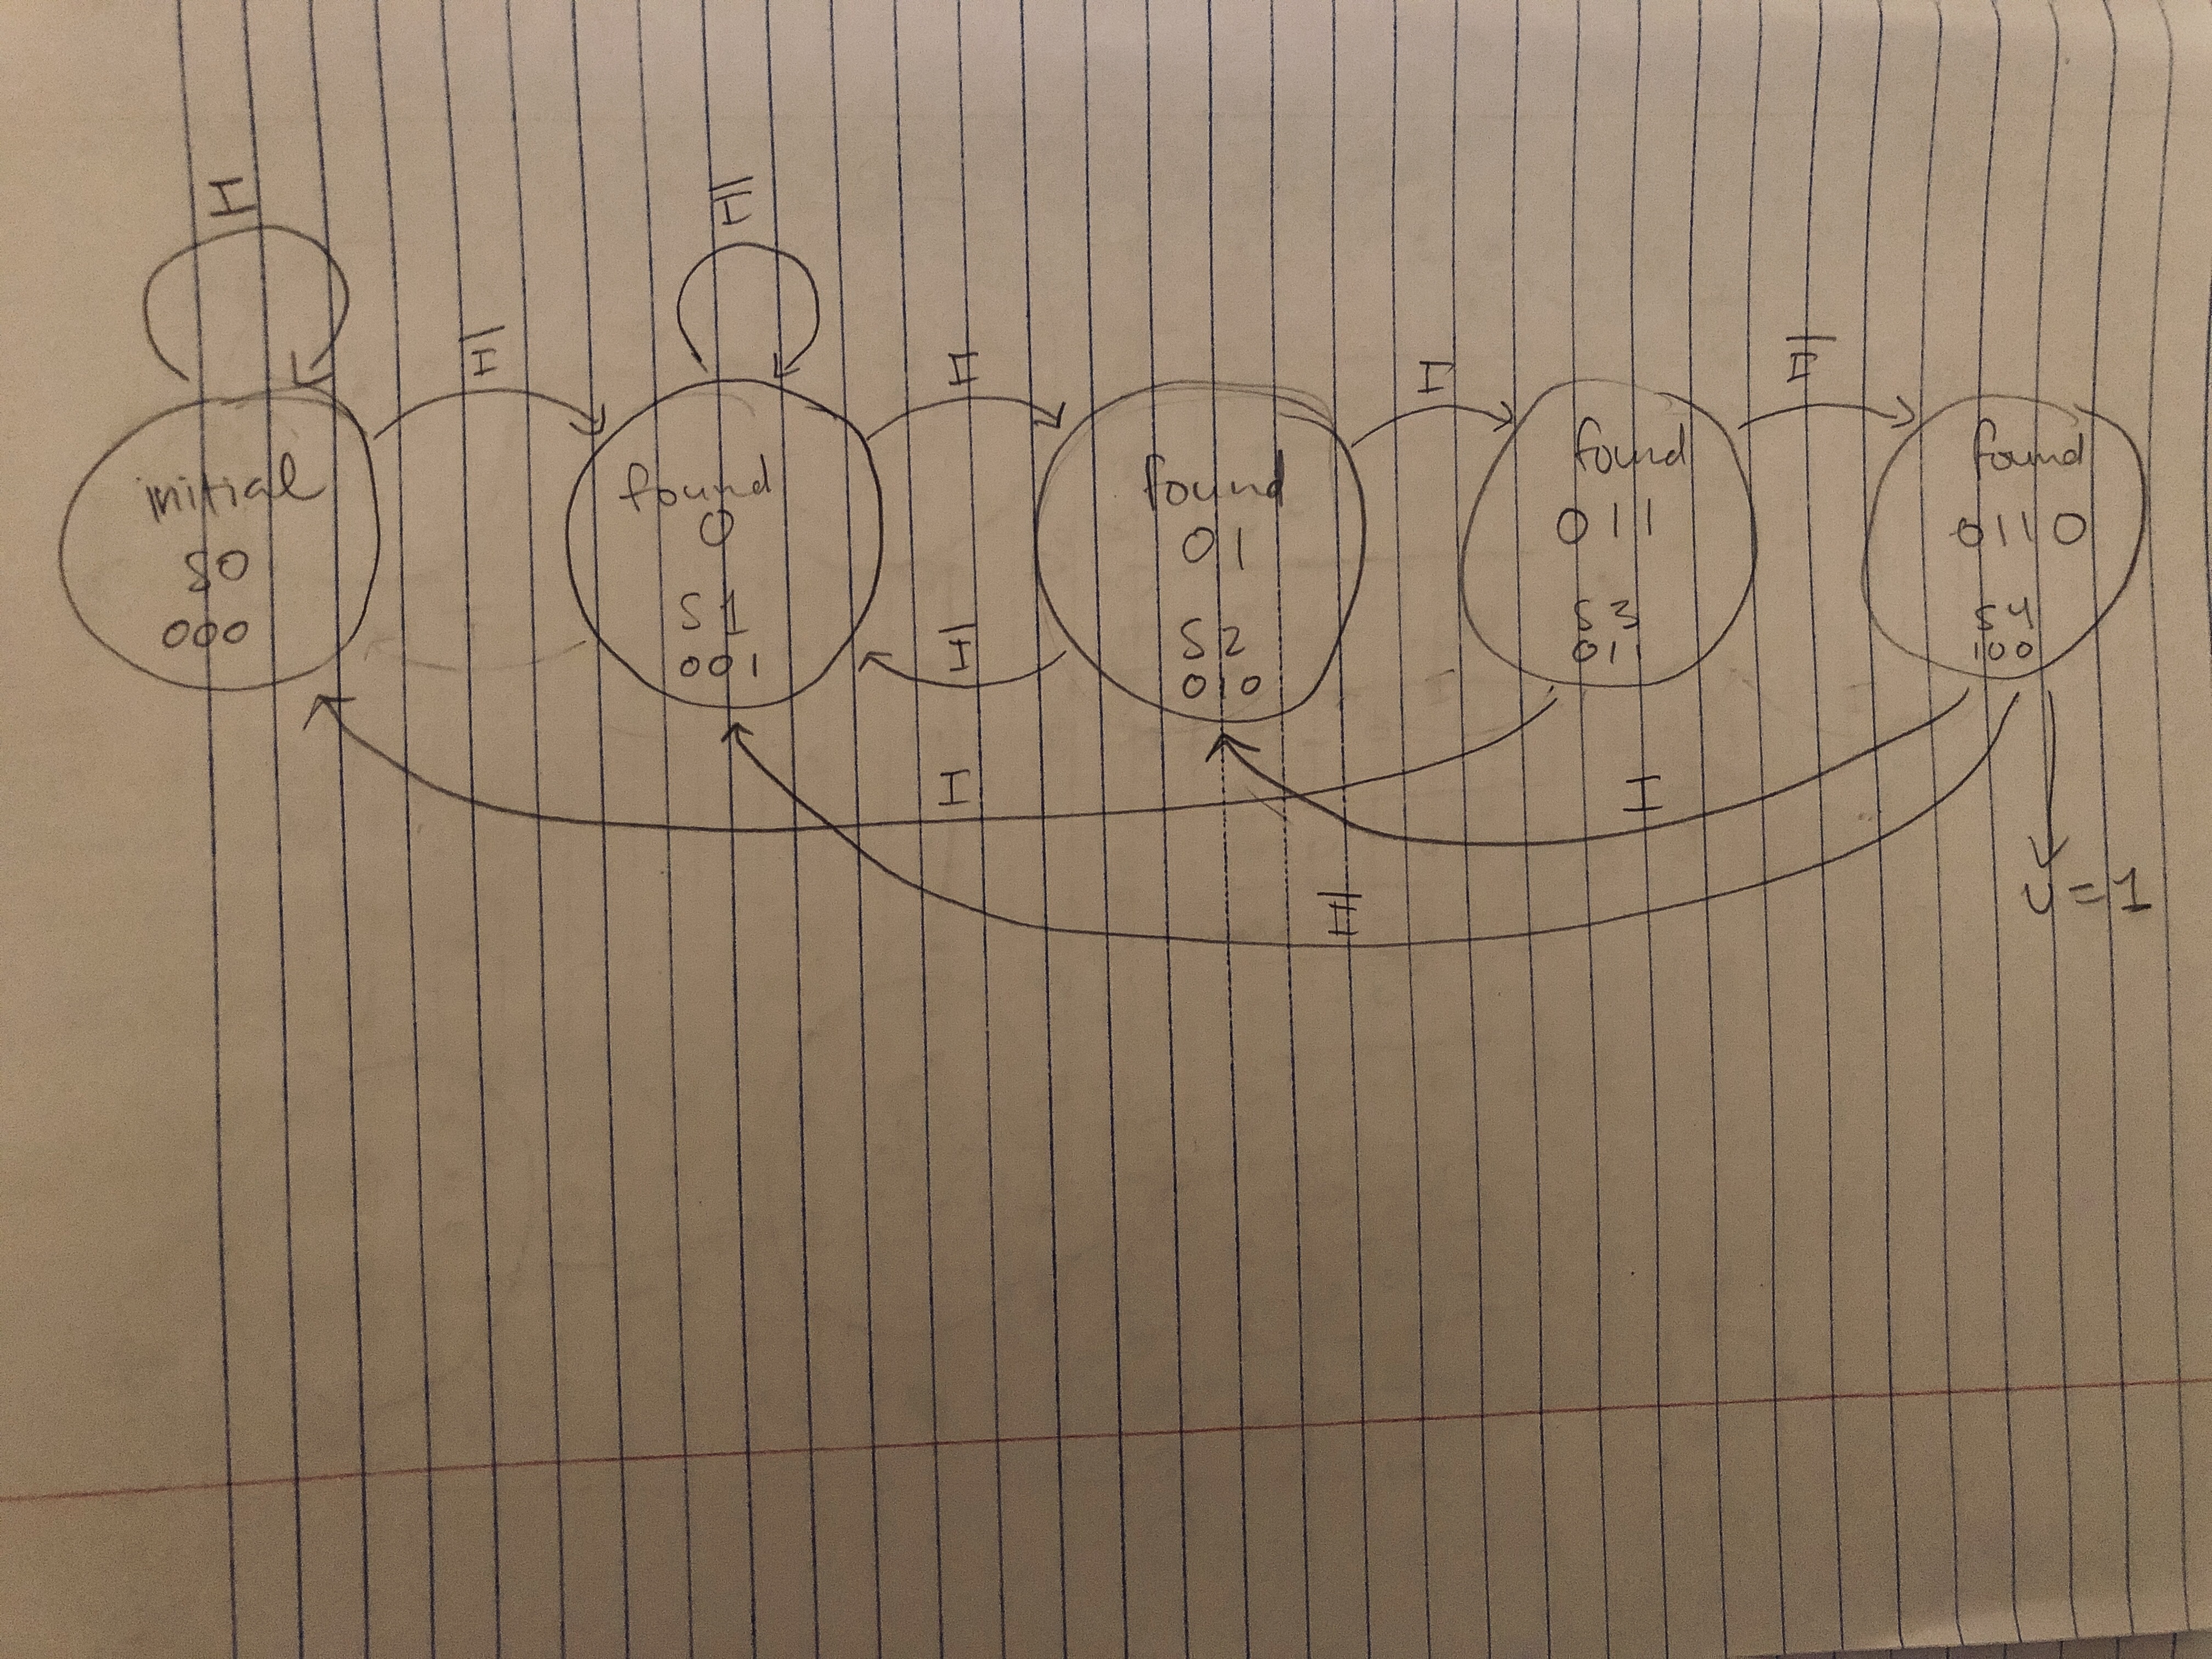 I
I̅
I̅
I
I
I̅
initial
S0
000
found
0
S1
001
found
01
S2
010
found
011
S3
011
found
0110
S4
100
I̅
I
I
I̅
U=1